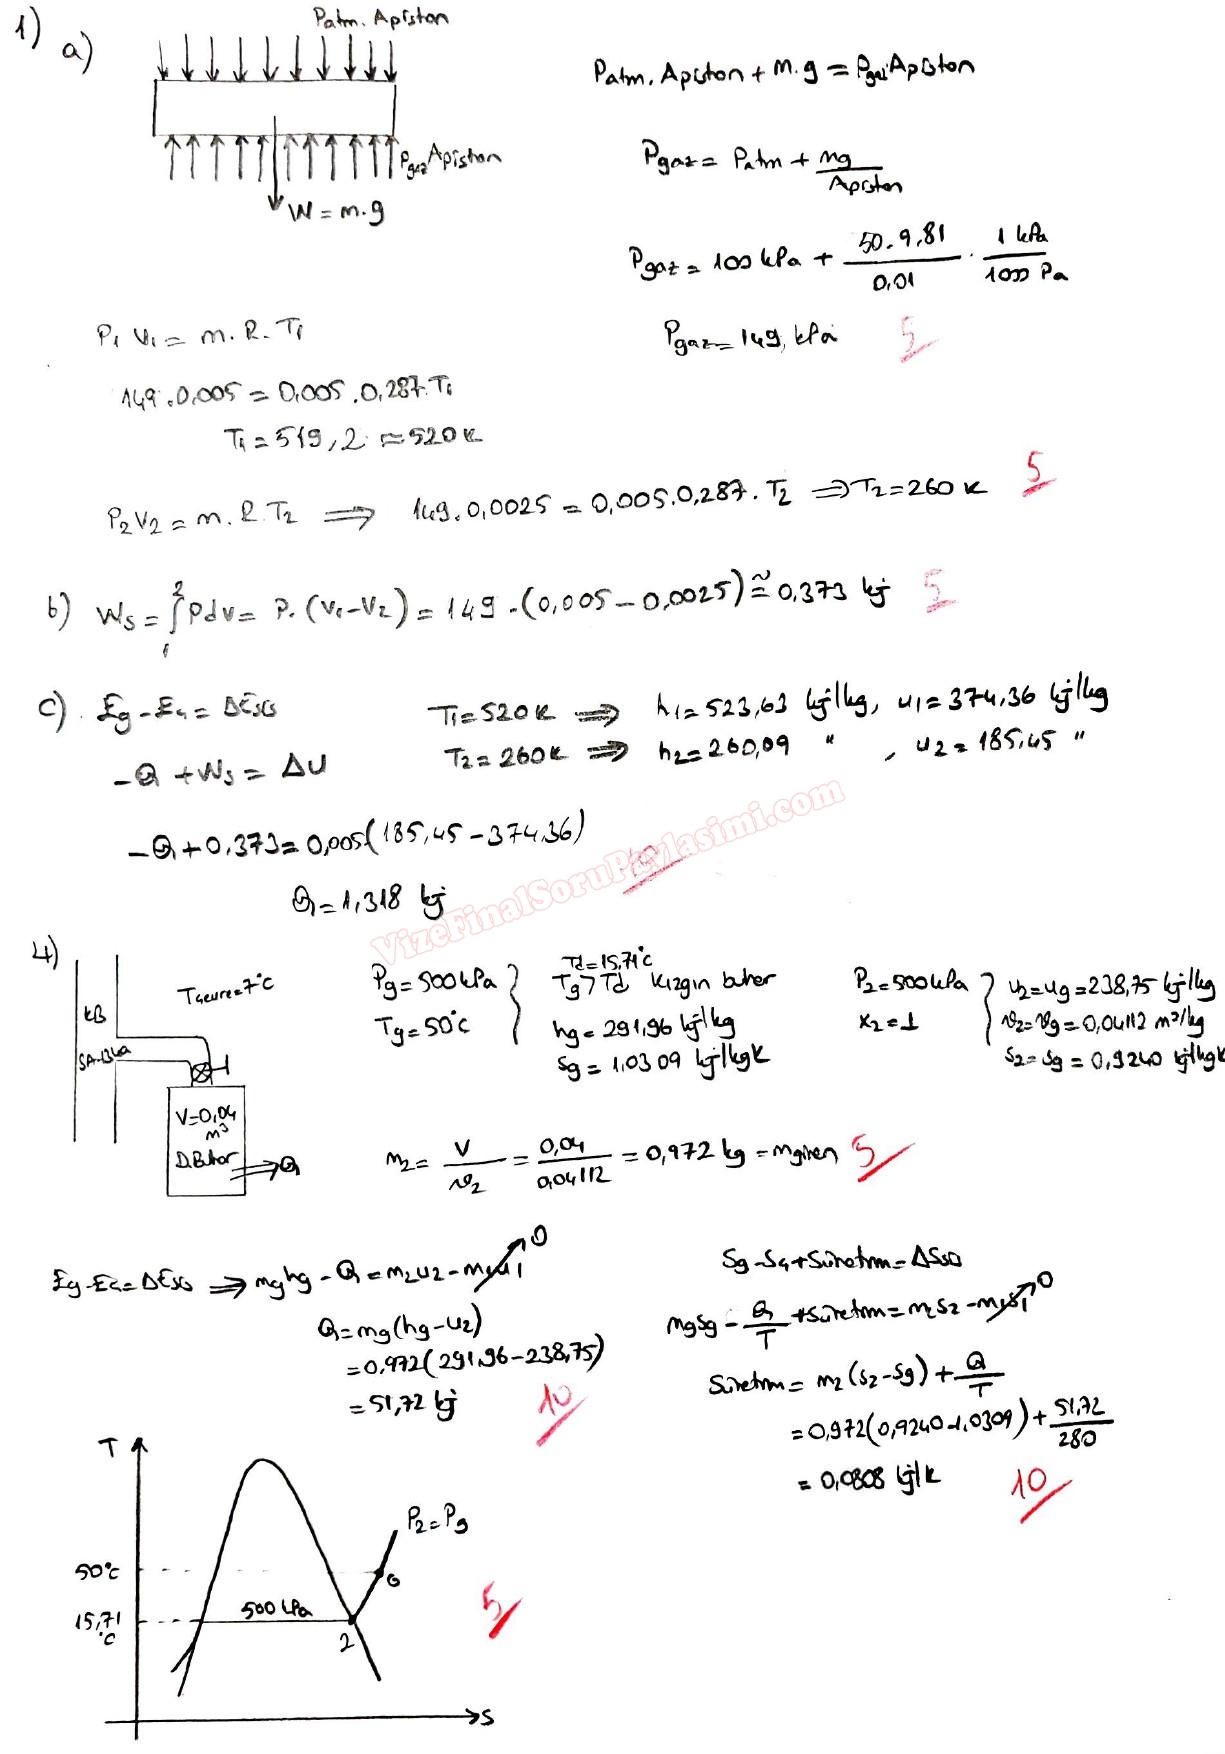 1)
a)
Patm. Apiston
Patm. Apiston + m.g = Pgaz Apiston
Pgaz Apiston
W = m.g
Pgaz = Patm + mg / Apiston
Pgaz = 100 kPa + 50.9,81 / 0,01 . 1 kPa / 1000 Pa
Pgaz = 149, kPa
5
P1 V1 = m.R.T1
149.0,005 = 0,005.0,287.T1
T1 = 519,2 ≈ 520 K
P2V2 = m.R.T2 ⟹ 149.0,0025 = 0,005.0,287.T2 ⟹ T2 = 260 K
5
b) Ws = ∫₁² Pdv = P.(V1-V2) = 149.(0,005-0,0025) ≅ 0,373 kj
5
c) Eg-Eç = ΔEsis
T1 = 520 K ⟹ h1 = 523,63 kj/kg, u1 = 374,36 kj/kg
T2 = 260 K ⟹ h2 = 260,09 " , u2 = 185,45 "
-Q + Ws = ΔU
-Q + 0,373 = 0,005(185,45-374,36)
10
Q = 1,318 kj
VizeFinalSoruPaylasimi.com
4)
KB
SA-134a
Tçevre = 7°C
V = 0,04 m³
D.Buhar
Q
Pg = 500 kPa
Tg = 50°C
Td = 15,71°C
Tg > Td Kızgın buhar
hg = 291,96 kj/kg
sg = 1,0309 kj/kgK
P2 = 500 kPa
x2 = 1
u2 = ug = 238,75 kj/kg
v2 = vg = 0,04112 m³/kg
s2 = sg = 0,9240 kj/kgK
m2 = V / v2 = 0,04 / 0,04112 = 0,972 kg = mgiren
5
Eg-Eç = ΔEsis ⟹ mghg - Q = m2u2 - m1u1 0
Q = mg(hg-u2)
= 0,972(291,96-238,75)
= 51,72 kj
10
Sg-Sç+Süretim = ΔSsis
mgsg - Q / T + Süretim = m2s2 - m1s1 0
Süretim = m2(s2-sg) + Q / T
= 0,972(0,9240-1,0309) + 51,72 / 280
= 0,0808 kj/K
10
T
P2 = Pg
50°C
G
500 kPa
15,71 °C
2
5
S